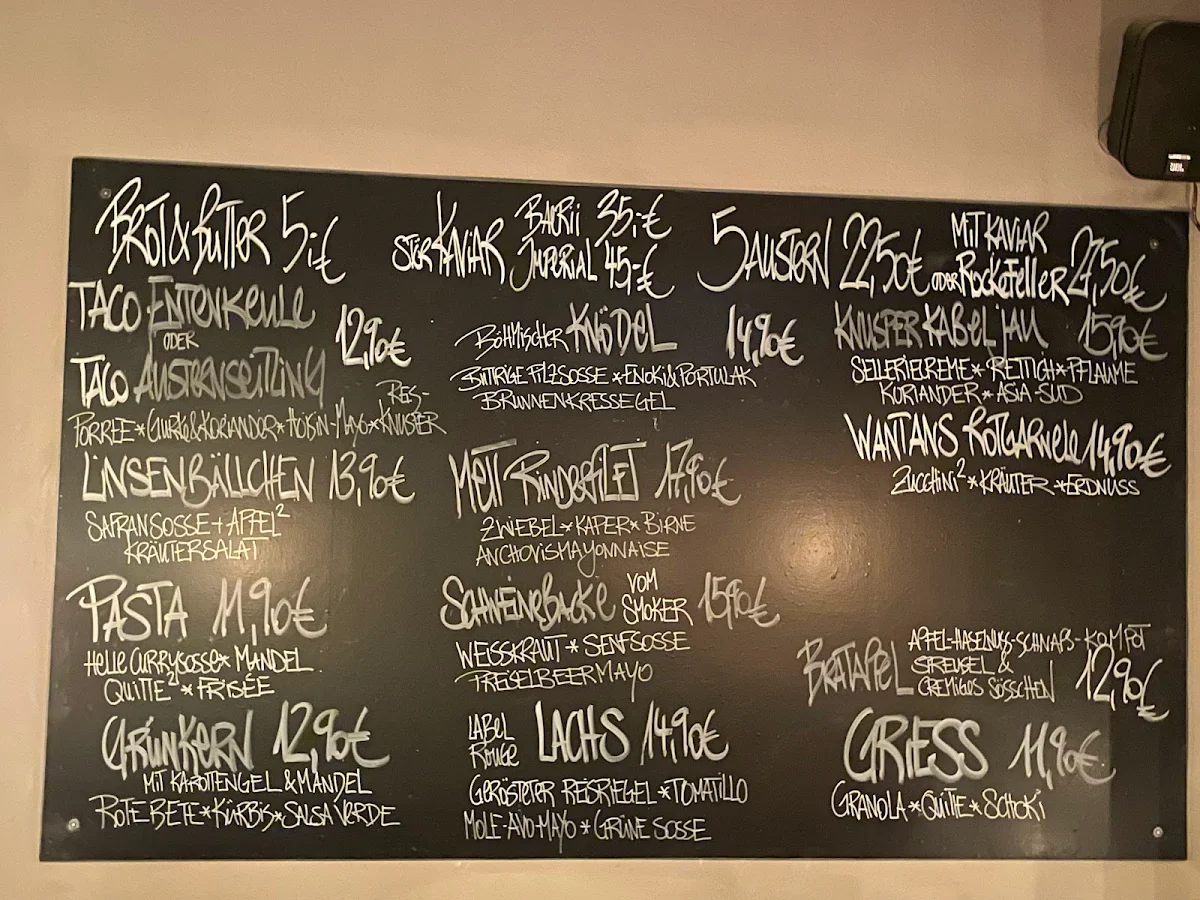 BROT & BUTTER 5,-€
STÖR KAVIAR BAERII 35,-€
IMPERIAL 45,-€
5 AUSTERN 22,50€ MIT KAVIAR
ODER ROCKEFELLER 27,50€
TACO ENTENKEULE
ODER
TACO AUSTERNSEITLING
12,90€
REIS-
PORREE * GURKE & KORIANDER * HOISIN-MAYO * KNUSPER
LINSENBÄLLCHEN 13,90€
SAFRANSOSSE + APFEL²
KRÄUTERSALAT
PASTA 11,90€
HELLE CURRYSOSSE * MANDEL
QUITTE² * FRISÉE
GRÜNKERN 12,90€
MIT KAROTTENGEL & MANDEL
ROTE BETE * KÜRBIS * SALSA VERDE
BÖHMISCHER KNÖDEL 14,90€
BUTRIGE PILZSOSSE * ENOKI & PORTULAK
BRUNNENKRESSEGEL
METT RINDERFILET 17,90€
ZWIEBEL * KAPER * BIRNE
ANCHOVISMAYONNAISE
SCHWEINEBACKE VOM
SMOKER 15,90€
WEISSKRAUT * SENFSOSSE
PREISELBEERMAYO
LABEL
ROUGE LACHS 14,90€
GERÖSTETER REISRIEGEL * TOMATILLO
MOLE-AVO-MAYO * GRÜNE SOSSE
KNUSPER KABELJAU 15,90€
SELLERIECREME * RETTICH * PFLAUME
KORIANDER * ASIA-SUD
WANTANS ROTGARNELE 14,90€
ZUCCHINI² * KRÄUTER * ERDNUSS
BRATAPFEL APFEL-HASELNUSS-SCHNAPS-KOMPOTT
STREUSEL &
CREMIGES SÖSSCHEN 12,90€
GRIESS 11,90€
GRANOLA * QUITTE * SCHOKI